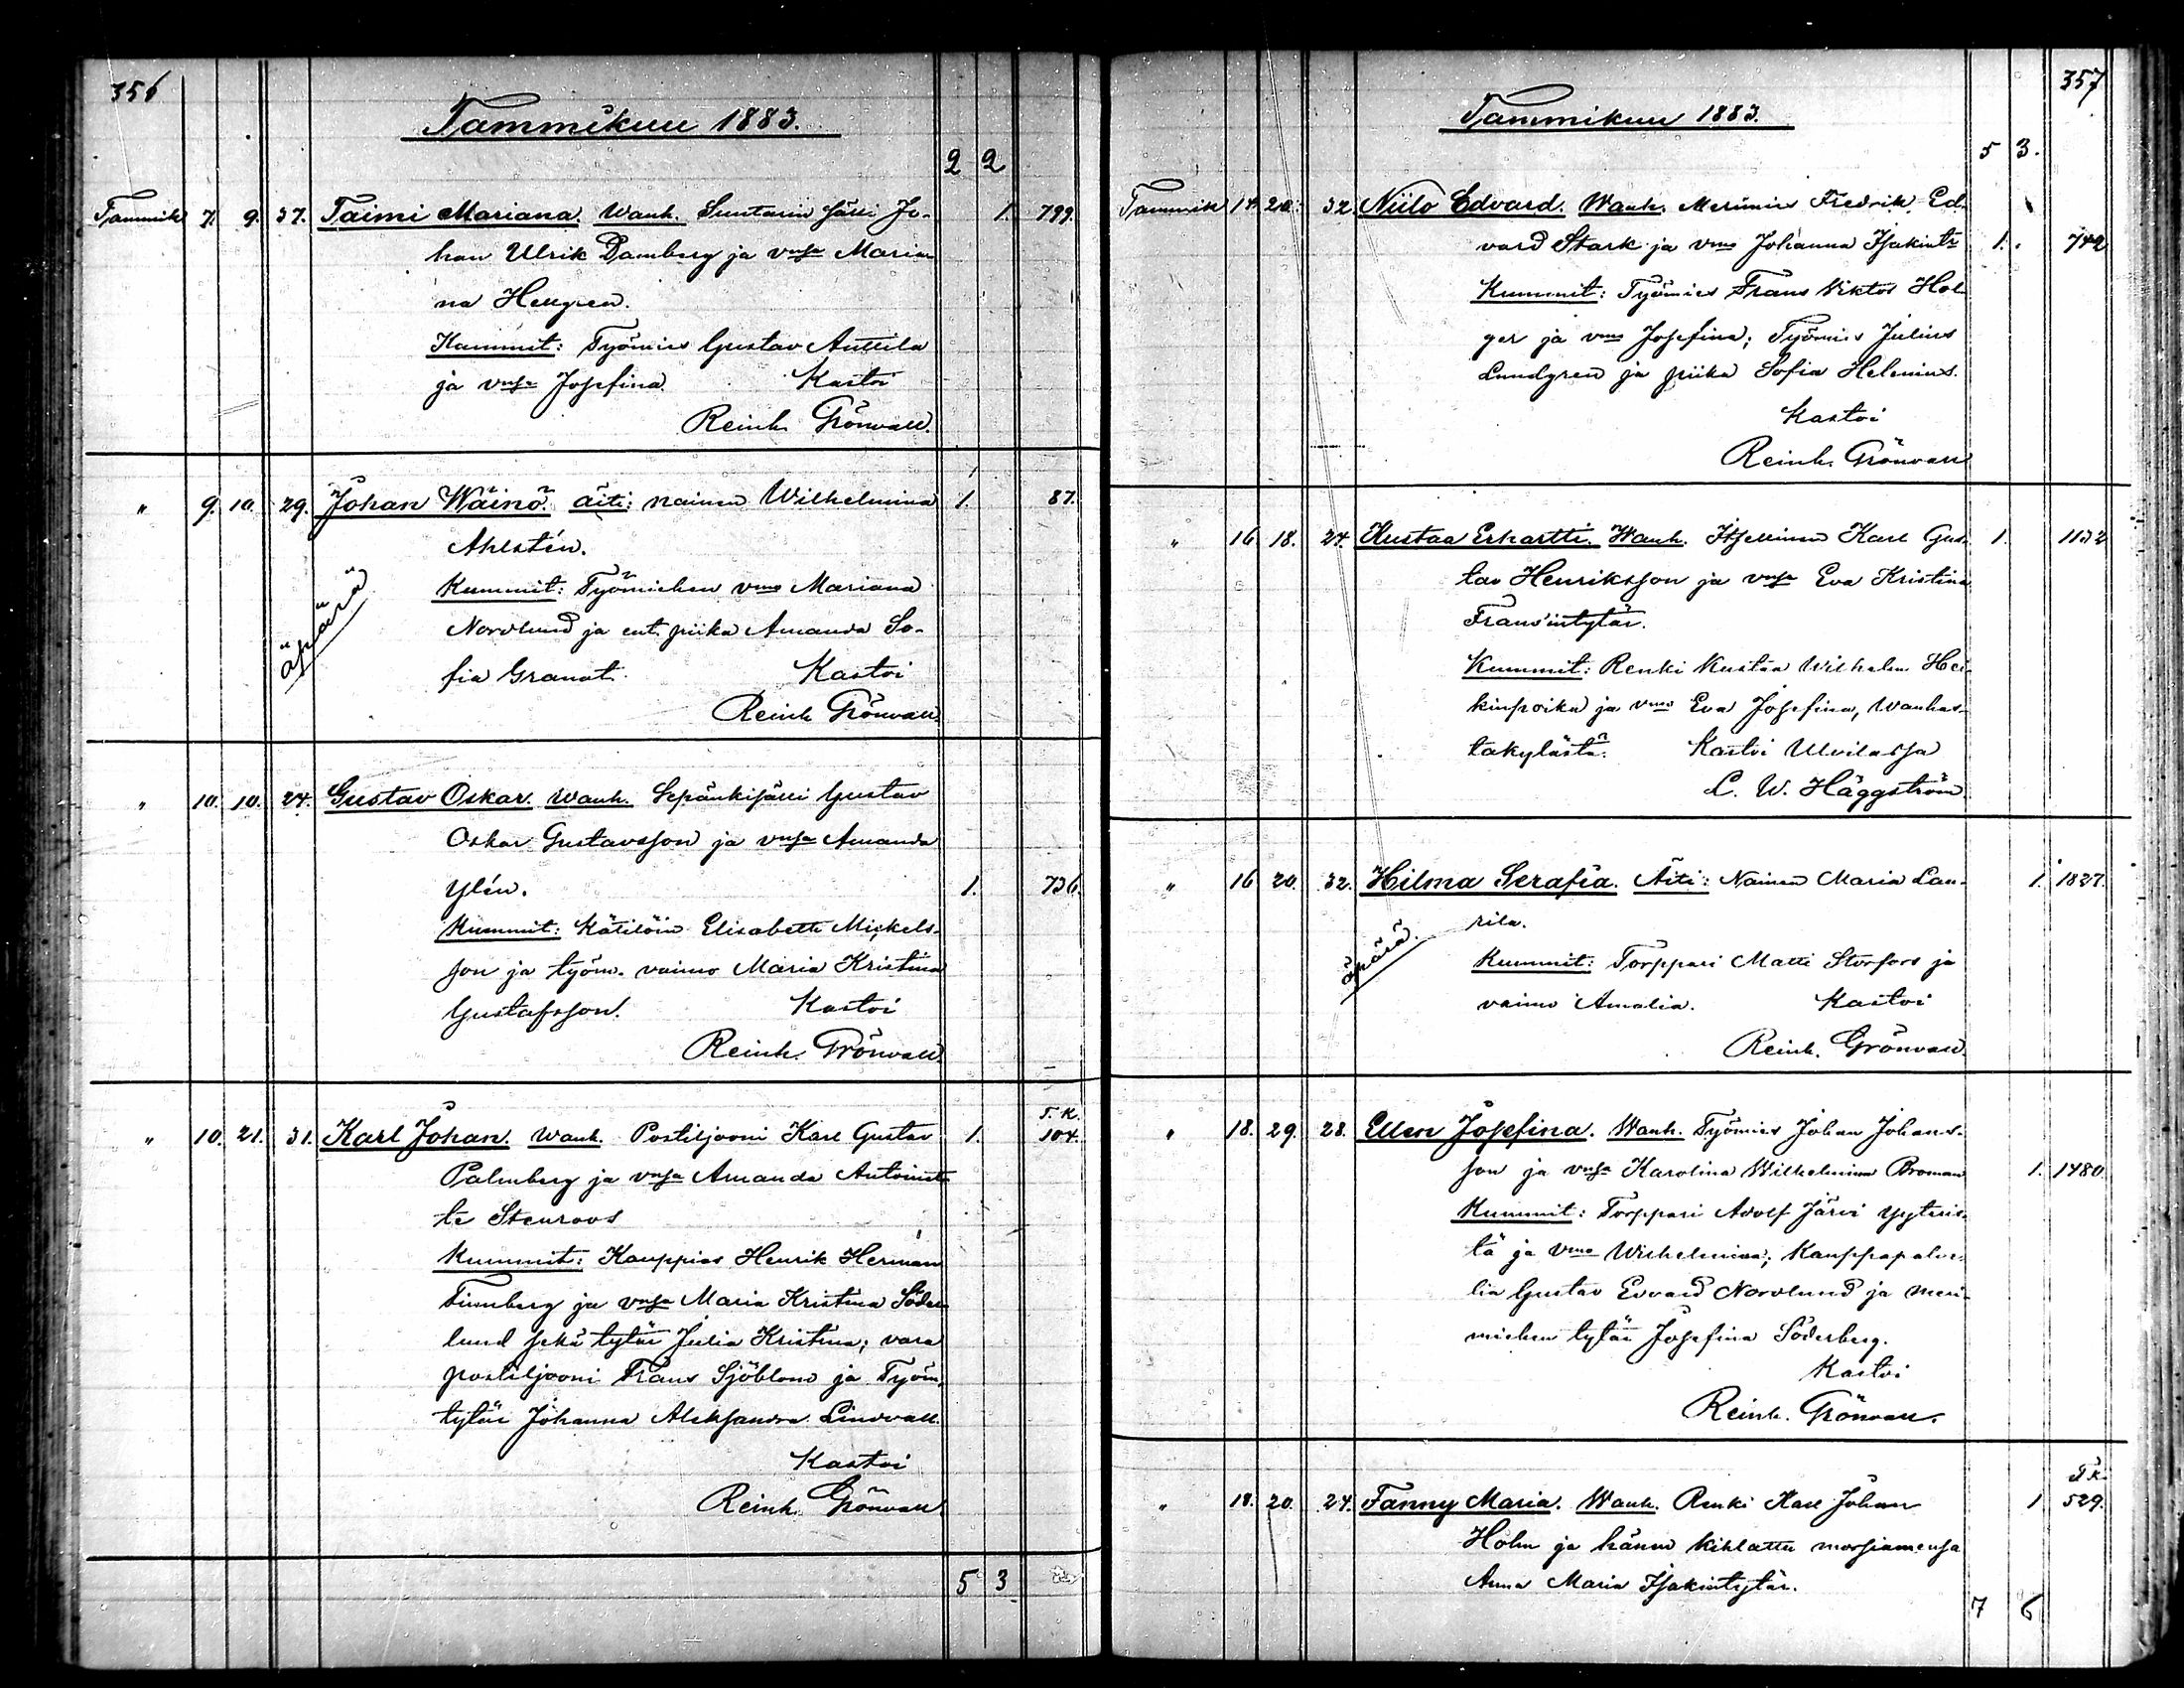 356
Tammikuu 1883.
2 2
Tammik 7. 9. 37. Taimi Mariana. Wanh. Suntarin sälli Jo- 1. 799.
han Ulrik Damberg ja vnsa Maria
na Hellgren.
Kummit: Työmies Gustav Anttila
ja vnsa Josefina. Kastoi
Reinh. Grönvall.
" 9. 10. 29. Johan Wäinö. äiti: nainen Wilhelmina 1. 87.
Ahlstén.
äpärä
Kummit: Työmiehen vmo Mariana
Nordlund ja ent. piika Amanda So-
fia Granat. Kastoi
Reinh Grönvall
" 10. 10. 24. Gustav Oskar. Wanh. Sepänkisälli Gustav
Oskar Gustavsson ja vnsa Amanda
Ylén. 1. 736.
Kummit: Kätilöin Elisabeth Mickels-
son ja työm. vaimo Maria Kristina
Gustafsson. Kastoi
Reinh. Grönvall.
" 10. 21. 31. Karl Johan. Wanh. Postiljooni Karl Gustav 1. T. K. 104.
Palmberg ja vnsa Amanda Antoinet
te Stenroos
Kummit: Kauppias Henrik Herman
ja vnsa Maria Kristina Söder
lund sekä tytär Julia Kristina; vara
postiljooni Frans Sjöblom ja Työm.
tytär Johanna Aleksandra Lindvall.
Kastoi
Reinh. Grönvall.
5 3
357
Tammikuu 1883.
5 3.
Tammik 14. 20. 32. Niilo Edvard. Wanh. Merimies Fredrik Ed-
vard Stark ja vmo Johanna Isakintr 1. 742
Kummit: Työmies Frans Viktor Hol
ger ja vmo Josefina; Työmies Julius
Lundgren ja piika Sofia Helenius.
Kastoi
Reinh. Grönvall
" 16 18. 24. Kustaa Erhartti. Wanh. Itsellinen Karl Gus- 1. 1132
tav Henriksson ja vnsa Eva Kristina
Fransintytär.
Kummit: Renki Kustaa Wilhelm Hei-
kinpoika ja vmo Eva Josefina, Wanhas-
takylästä. Kastoi Ulvilassa
C. W. Häggström.
" 16 20. 32. Hilma Serafia. Äiti: Nainen Maria Lau- 1. 1827.
rila.
äpärä.
Kummit: Torppari Matti Storfors ja
vaimo Amalia. Kastoi
Reinh. Grönvall.
" 18. 29. 28. Ellen Josefina. Wanh. Työmies Johan Johans-
son ja vnsa Karolina Wilhelmina Broman 1. 1480.
Kummit: Torppari Adolf Järvi Yyteris-
tä ja vmo Wilhelmina; Kauppapalve-
lia Gustav Edvard Nordlund ja meri-
miehen tytär Josefina Söderberg.
Kastoi
Reinh. Grönvall.
" 18. 20. 24. Fanny Maria. Wanh. Renki Karl Johan 1 T. K. 529.
Holm ja hänen kihlattu morsiamensa
Anna Maria Isakintytär.
7 6